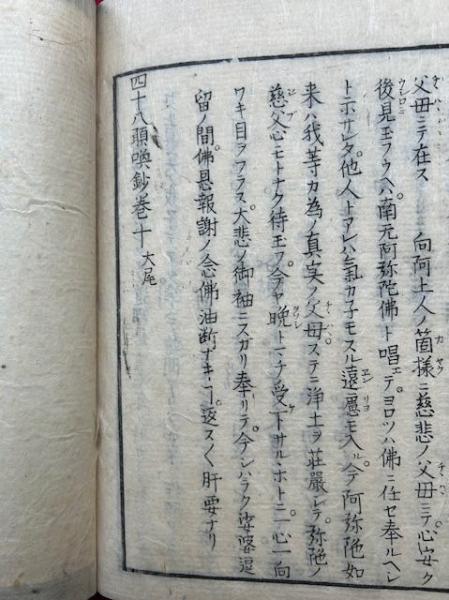 父母ニテ在ス 向阿上人ノ箇様ニ慈悲ノ父母ニテ心安ク
後見玉フウヘハ南元阿弥陀佛ト唱ヱテヨロツハ佛ニ任セ奉ルヘシ
トホサレタ他人トアレハ氣カ子モスル遠慮モ入ル今テ阿弥陀如
来ハ我等カ為ノ真実ノ父母ステニ浄土ヲ荘嚴シテ弥陀ノ
慈父心モトナク待玉フ今ヤ晩トマチ受下サルホトニ一心一向
ワキ目ヲフラス大悲ノ御袖ニスカリ奉リテ今シハラク娑婆逗
留ノ間佛恩報謝ノ念佛油断ナキヤ返スく肝要ナリ
四十八願喚鈔巻十 大尾